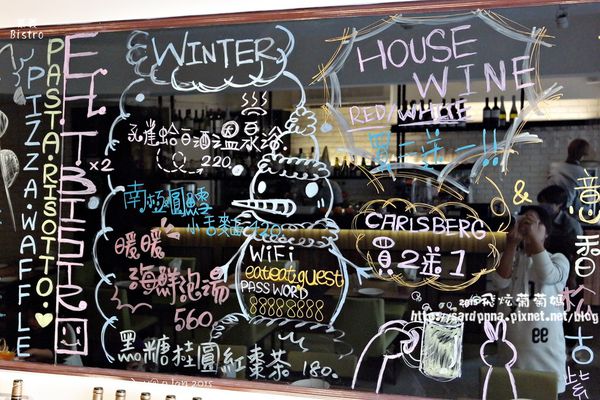 Bistro
PIZZA.WAFFLE
PASTA.RISOTTO.
EAT BISTRO
×2
WINTER
孔雀蛤白酒溫泉浴
220
南極圓鱈
小吉麥面 420
暖暖
海鮮泡湯
560
黑糖桂圓紅棗茶 180.
WiFi
eateat.guest
PASSWORD
88888888
HOUSE
WINE
RED/WHITE
買二送一!!
CARLSBERG
買2送1
&
https://sardppna.pixnet.net/blog